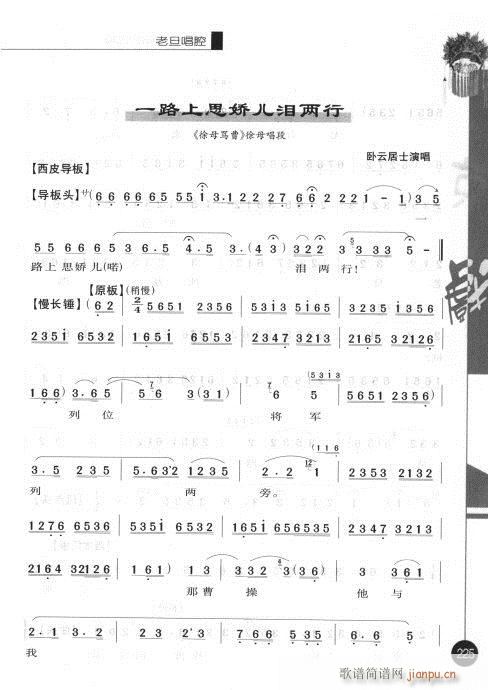 老旦唱腔
一路上思娇儿泪两行
《徐母骂曹》徐母唱段
卧云居士演唱
【西皮导板】
【导板头】サ 6 6 6 6 6 5 5 i 3. 1 2 2 2 7 6 6 1 2 2 2 1 -1) 3 5
一
5 5 6 6 6 5 3 6. 5 4. 5 3. (3) 3 2 2 3 3 3 3 5 - ‖
路上思娇儿(喏) 泪两行!
【慢长锤】 【原板】(稍慢) (6 2 2/4 5651 2356 5i3 5i65 3561 5643 2356
2351 6532 165i 6135 2312 3523 2347 3213 2165 3212
166) 3. 65 56 3(31) 6 5 5651 2356
列位 将军
3. 5 2 3 5 5.632 1235 2. 2 1 (116
列 两 旁。
1276 6536 535i 6532 126156 6535 2347 3235
2164 32126 6 1 3 332 3(36) 3 361
那曹操 他与
2. 1 3. 2 2. 3 2 766 535 6.6. 5
我
225
歌谱简谱网
jianpu.cn